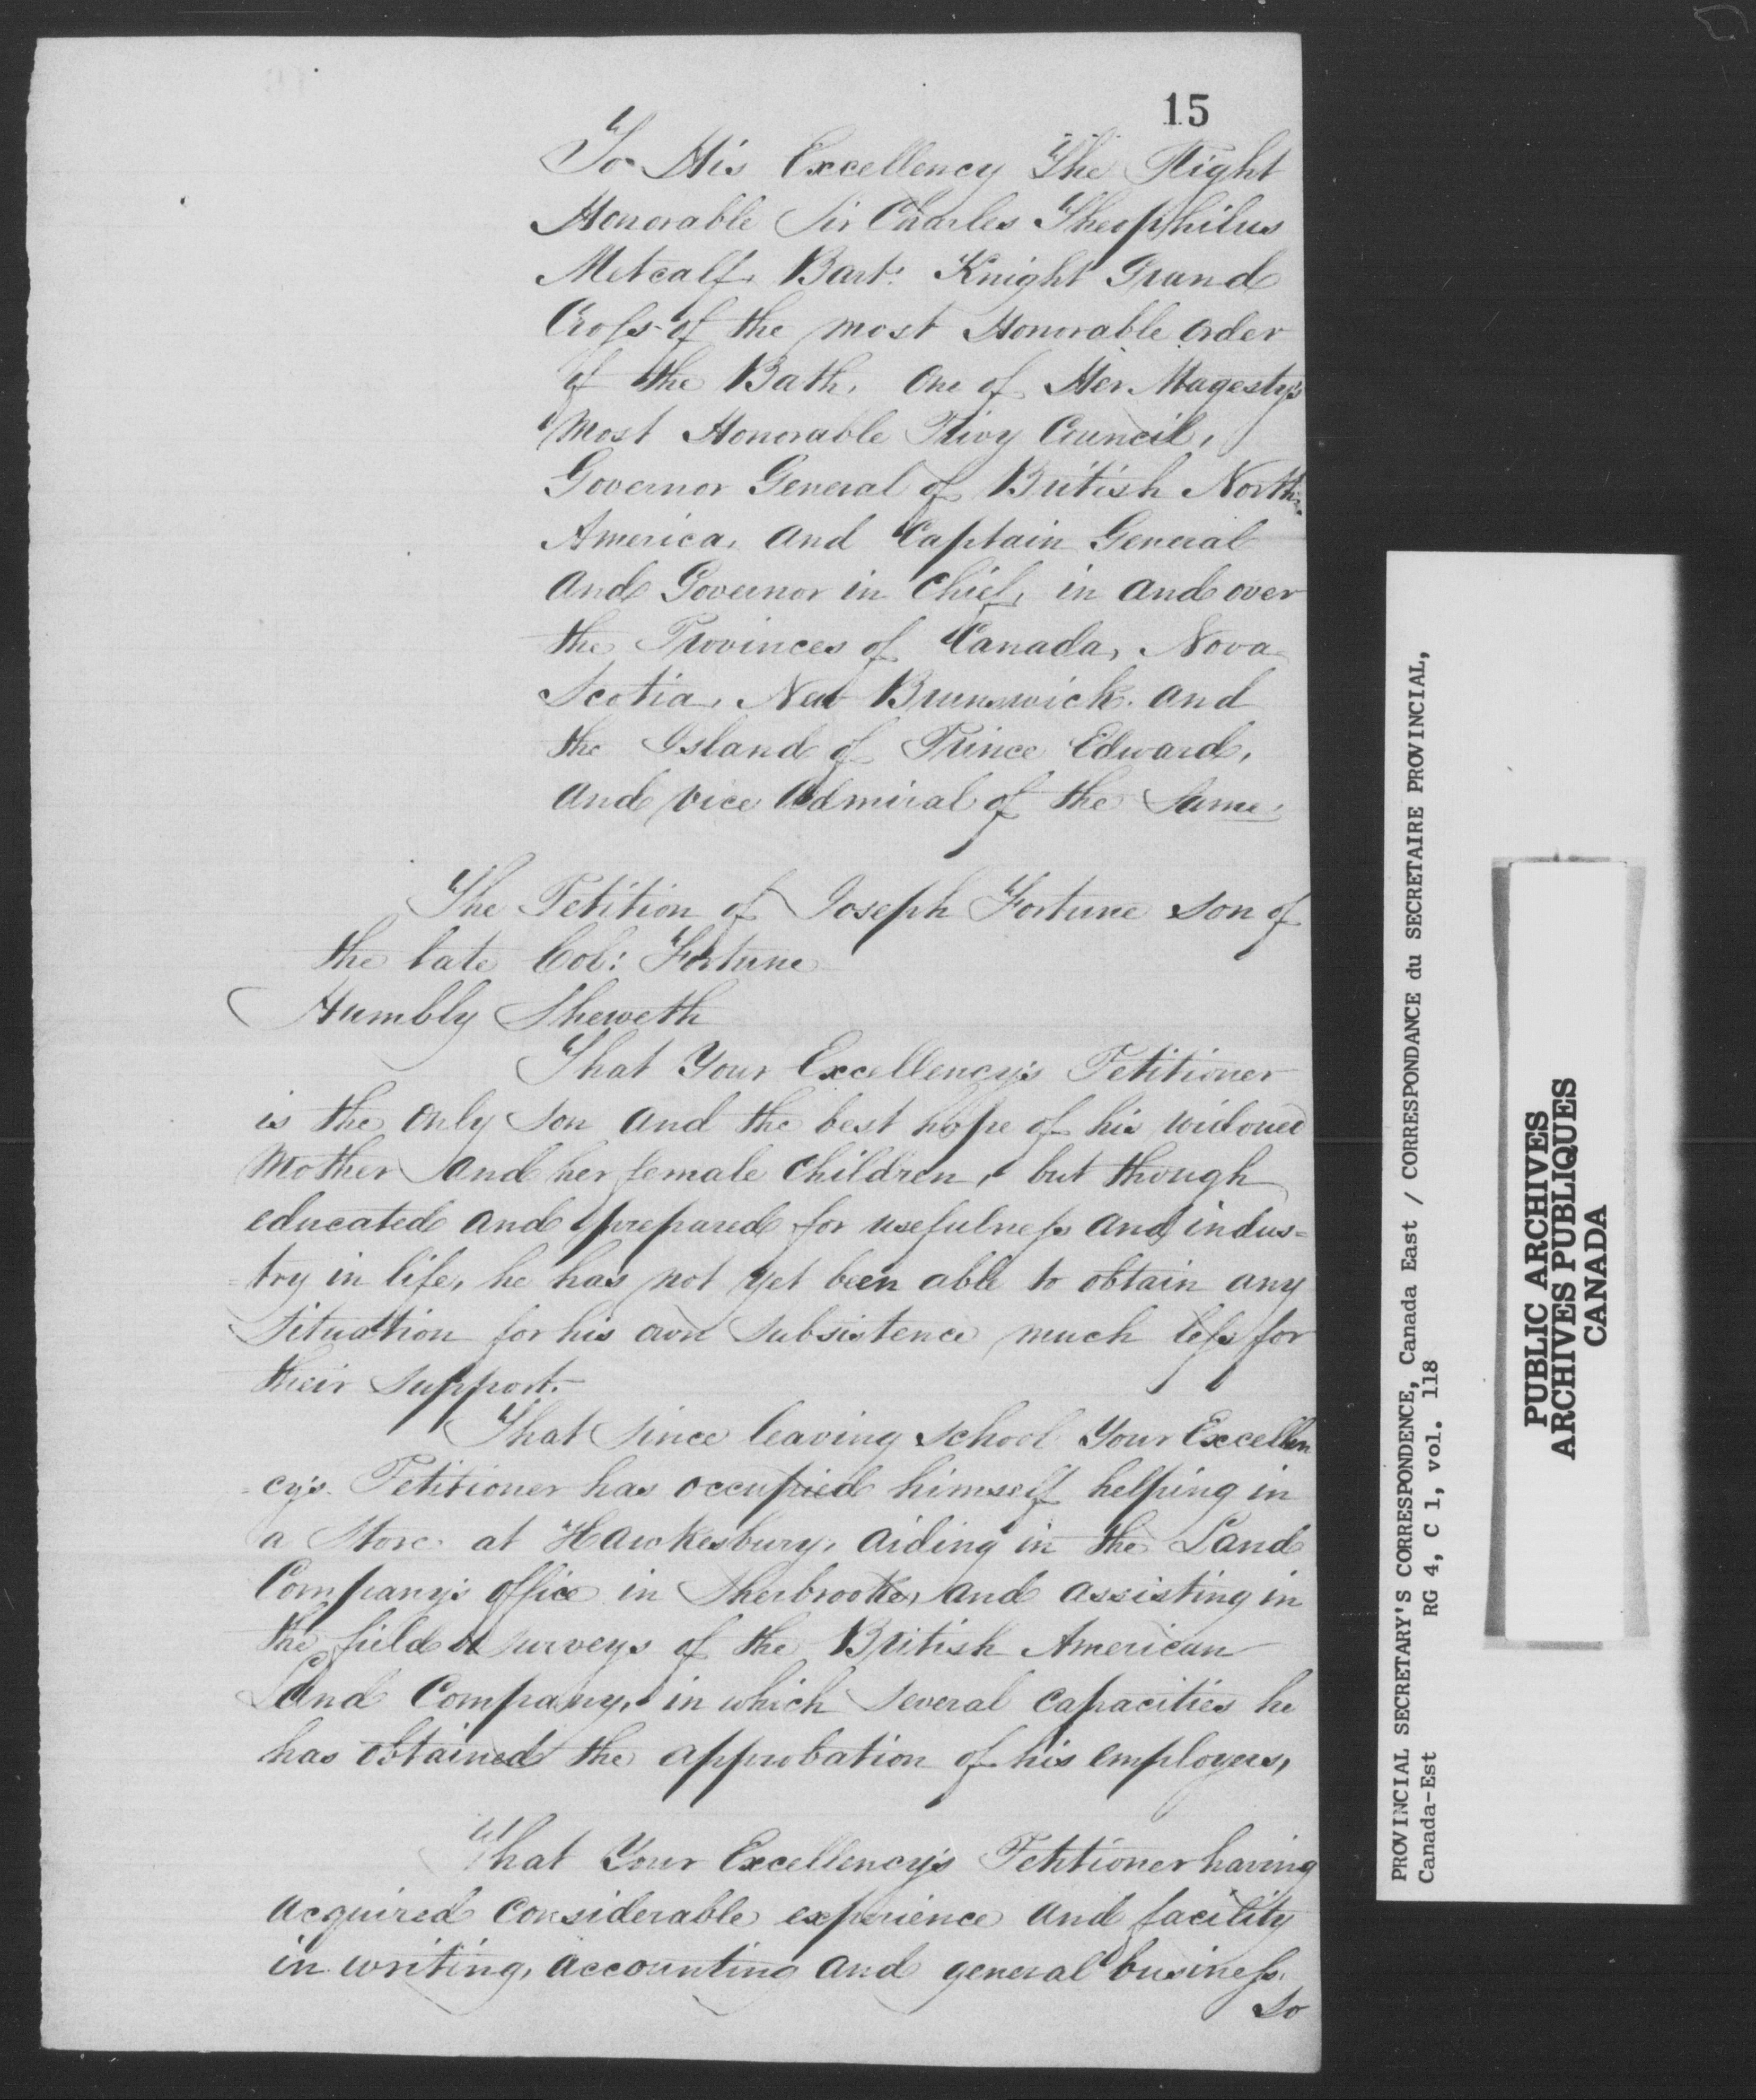 15
To His Excellency The Right
Honorable Sir Charles Theophilus
Metcalf, Bart: Knight Grand
Cross of the most Honorable order
of the Bath, One of Her Magesty's
Most Honorable Privy Council,
Governor General of British North
America, and Captain General
and Governor in Chief, in and over
the Provinces of Canada, Nova
Scotia, New Brunswick and
the Island of Prince Edward,
and vice Admiral of the Same.
The Petition of Joseph Fortune son of
the late Col: Fortune
Humbly Sheweth
That Your Excellency's Petitioner
is the only son and the best hope of his widowed
Mother and her female children, but though
educated and prepared for usefulness and indus=
=try in life, he has not yet been able to obtain any
Situation for his own subsistence much less for
their support.
That since leaving school Your Excellen
=cy's Petitioner has occupied himself helping in
a Store at Hawkesbury, aiding in the Land
Company's office in Sherbrooke, and assisting in
the field surveys of the British American
Land Company, in which several capacities he
has obtained the approbation of his employers,
That Your Excellency's Petitioner having
acquired considerable experience and facility
in writing, accounting and general business.
so
PROVINCIAL SECRETARY'S CORRESPONDENCE, Canada East / CORRESPONDANCE du SECRETAIRE PROVINCIAL,
Canada-Est RG 4, C 1, vol. 118
PUBLIC ARCHIVES
ARCHIVES PUBLIQUES
CANADA